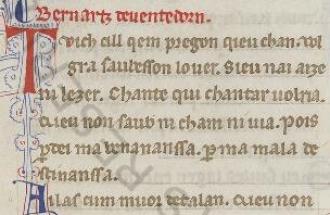 Bernartz deuentedorn.
Tvich cill qem pregon qeu chan. uol
gra saubesson louer. Sieu nai aize
ni lezer. Chante qui chantar uolria.
qieu non saub ni cham ni uia. pois
perdei ma benananssa. per ma mala de
stinanssa.
Ailas cum muor detalan. qieu non